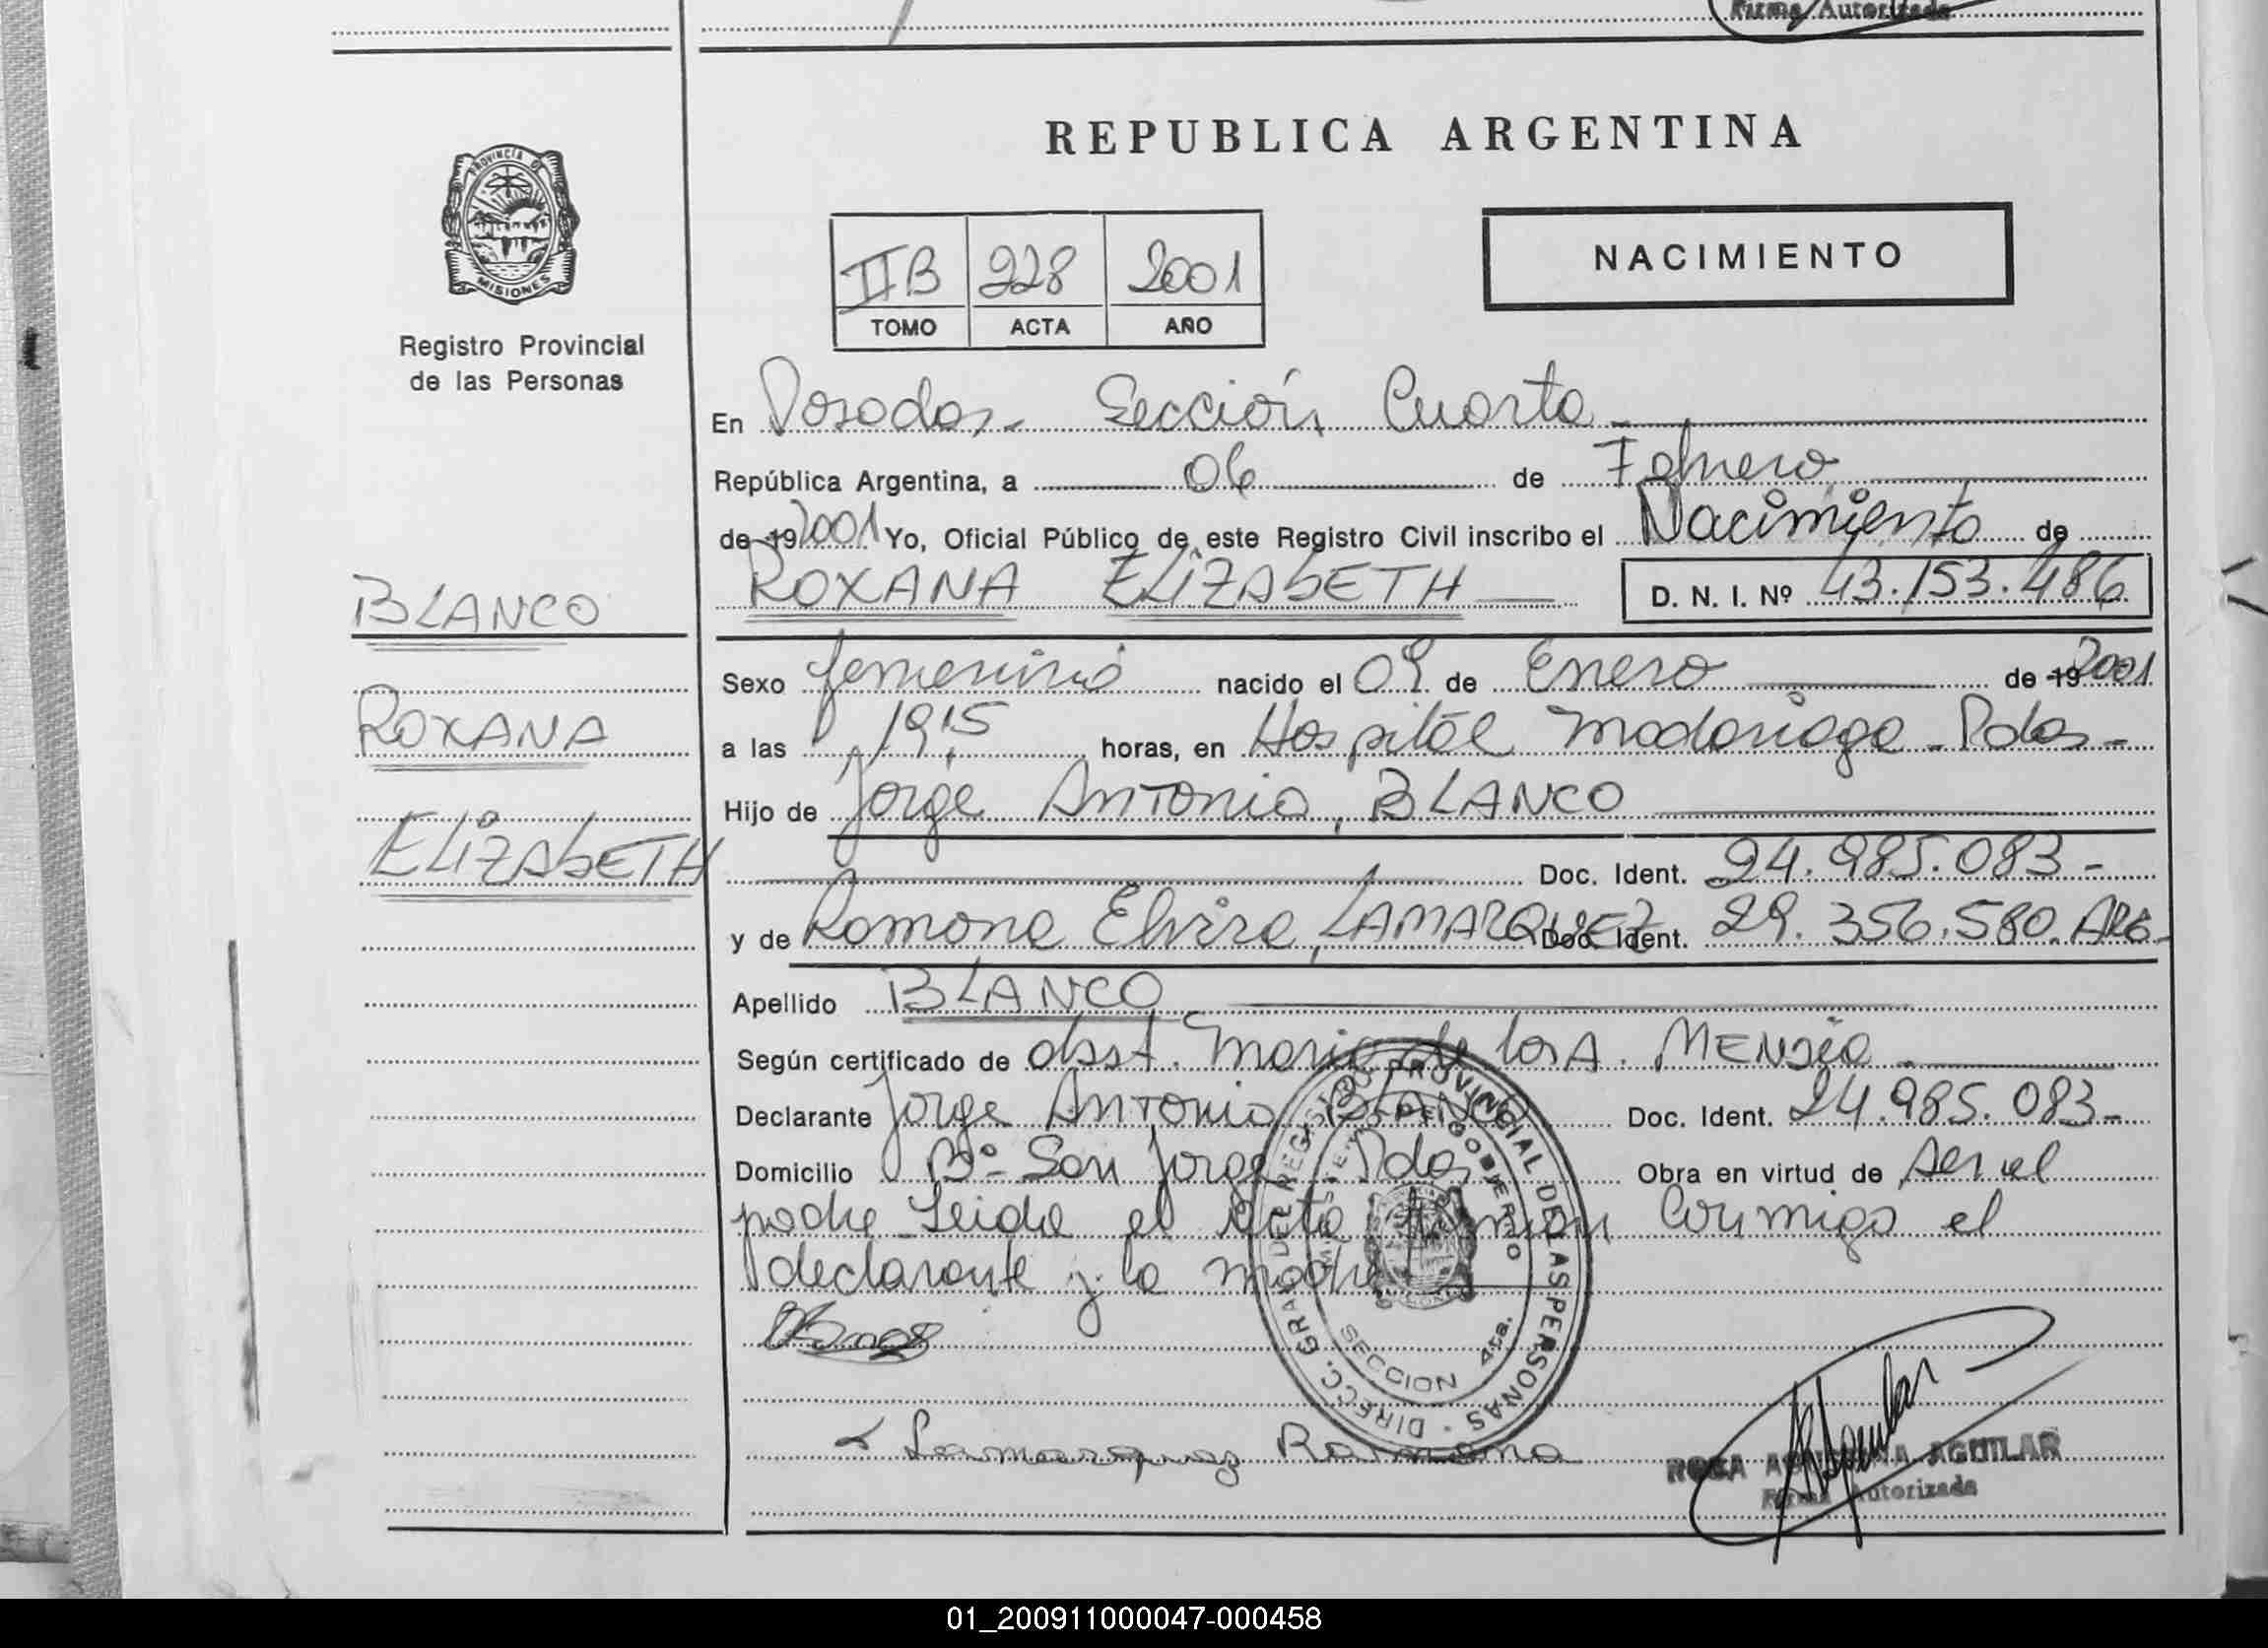 Firma Autorizada
PROVINCIA DE
MISIONES
Registro Provincial
de las Personas
REPUBLICA ARGENTINA
IIB 228 2001
TOMO ACTA AÑO
NACIMIENTO
En Posadas- Sección Cuarta
República Argentina, a 06 de Febrero
de 19 2001 Yo, Oficial Público de este Registro Civil inscribo el Nacimiento de
ROXANA ELIZABETH D. N. I. Nº 43.153.486
BLANCO
ROXANA
ELIZABETH
Sexo femenino nacido el 09 de Enero de 19 2001
a las 19,15 horas, en Hospital Madariaga - Pdas-
Hijo de Jorge Antonio, BLANCO
Doc. Ident. 24.985.083-
y de Ramona Elvira, LAMARQUEZ Doc. Ident. 29.356.580. ARG-
Apellido BLANCO
Según certificado de obst. Maria de los A. MENJIA
Declarante Jorge Antonio BLANCO Doc. Ident. 24.985.083-
Domicilio Bº San Jorge Pdas Obra en virtud de ser el
padre Leida el acta firman conmigo el
declarante y la madre
DIRECC. GRAL. DEL REGISTRO PROVINCIAL DE LAS PERSONAS
MINISTERIO DE GOBIERNO
SECCION 4ta.
Lamarquez Ramona
ROSA AGUILAR
Firma Autorizada
01_200911000047-000458